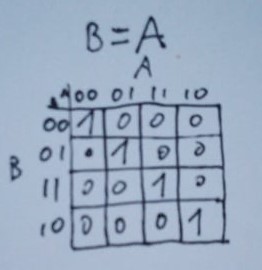 B=A
A
00 01 11 10
00 1 0 0 0
01 0 1 0 0
B
11 0 0 1 0
10 0 0 0 1